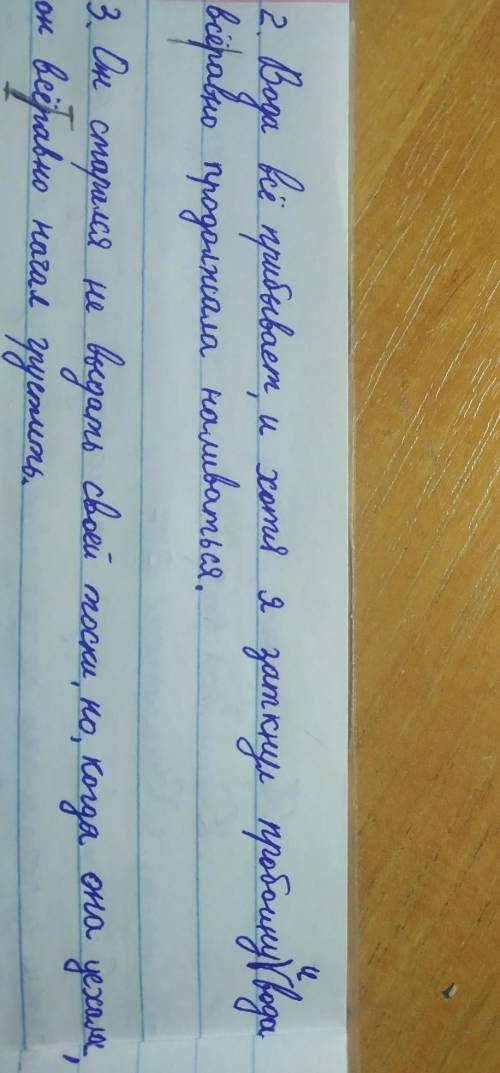 2. Вода всё прибывает, и хотя я заткнул пробоину, вода
всёравно продолжала наливаться.
3. Он старался не выдать своей тоски, но, когда она уехала,
он всёравно начал грустить.